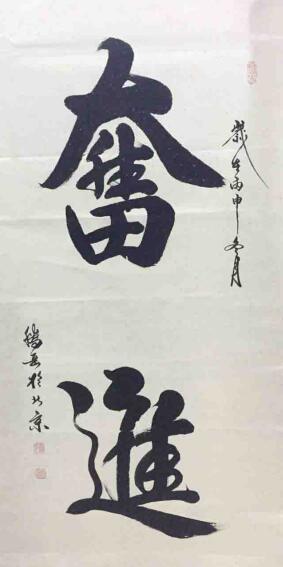 奮
進
歲在丙申冬月
於北京